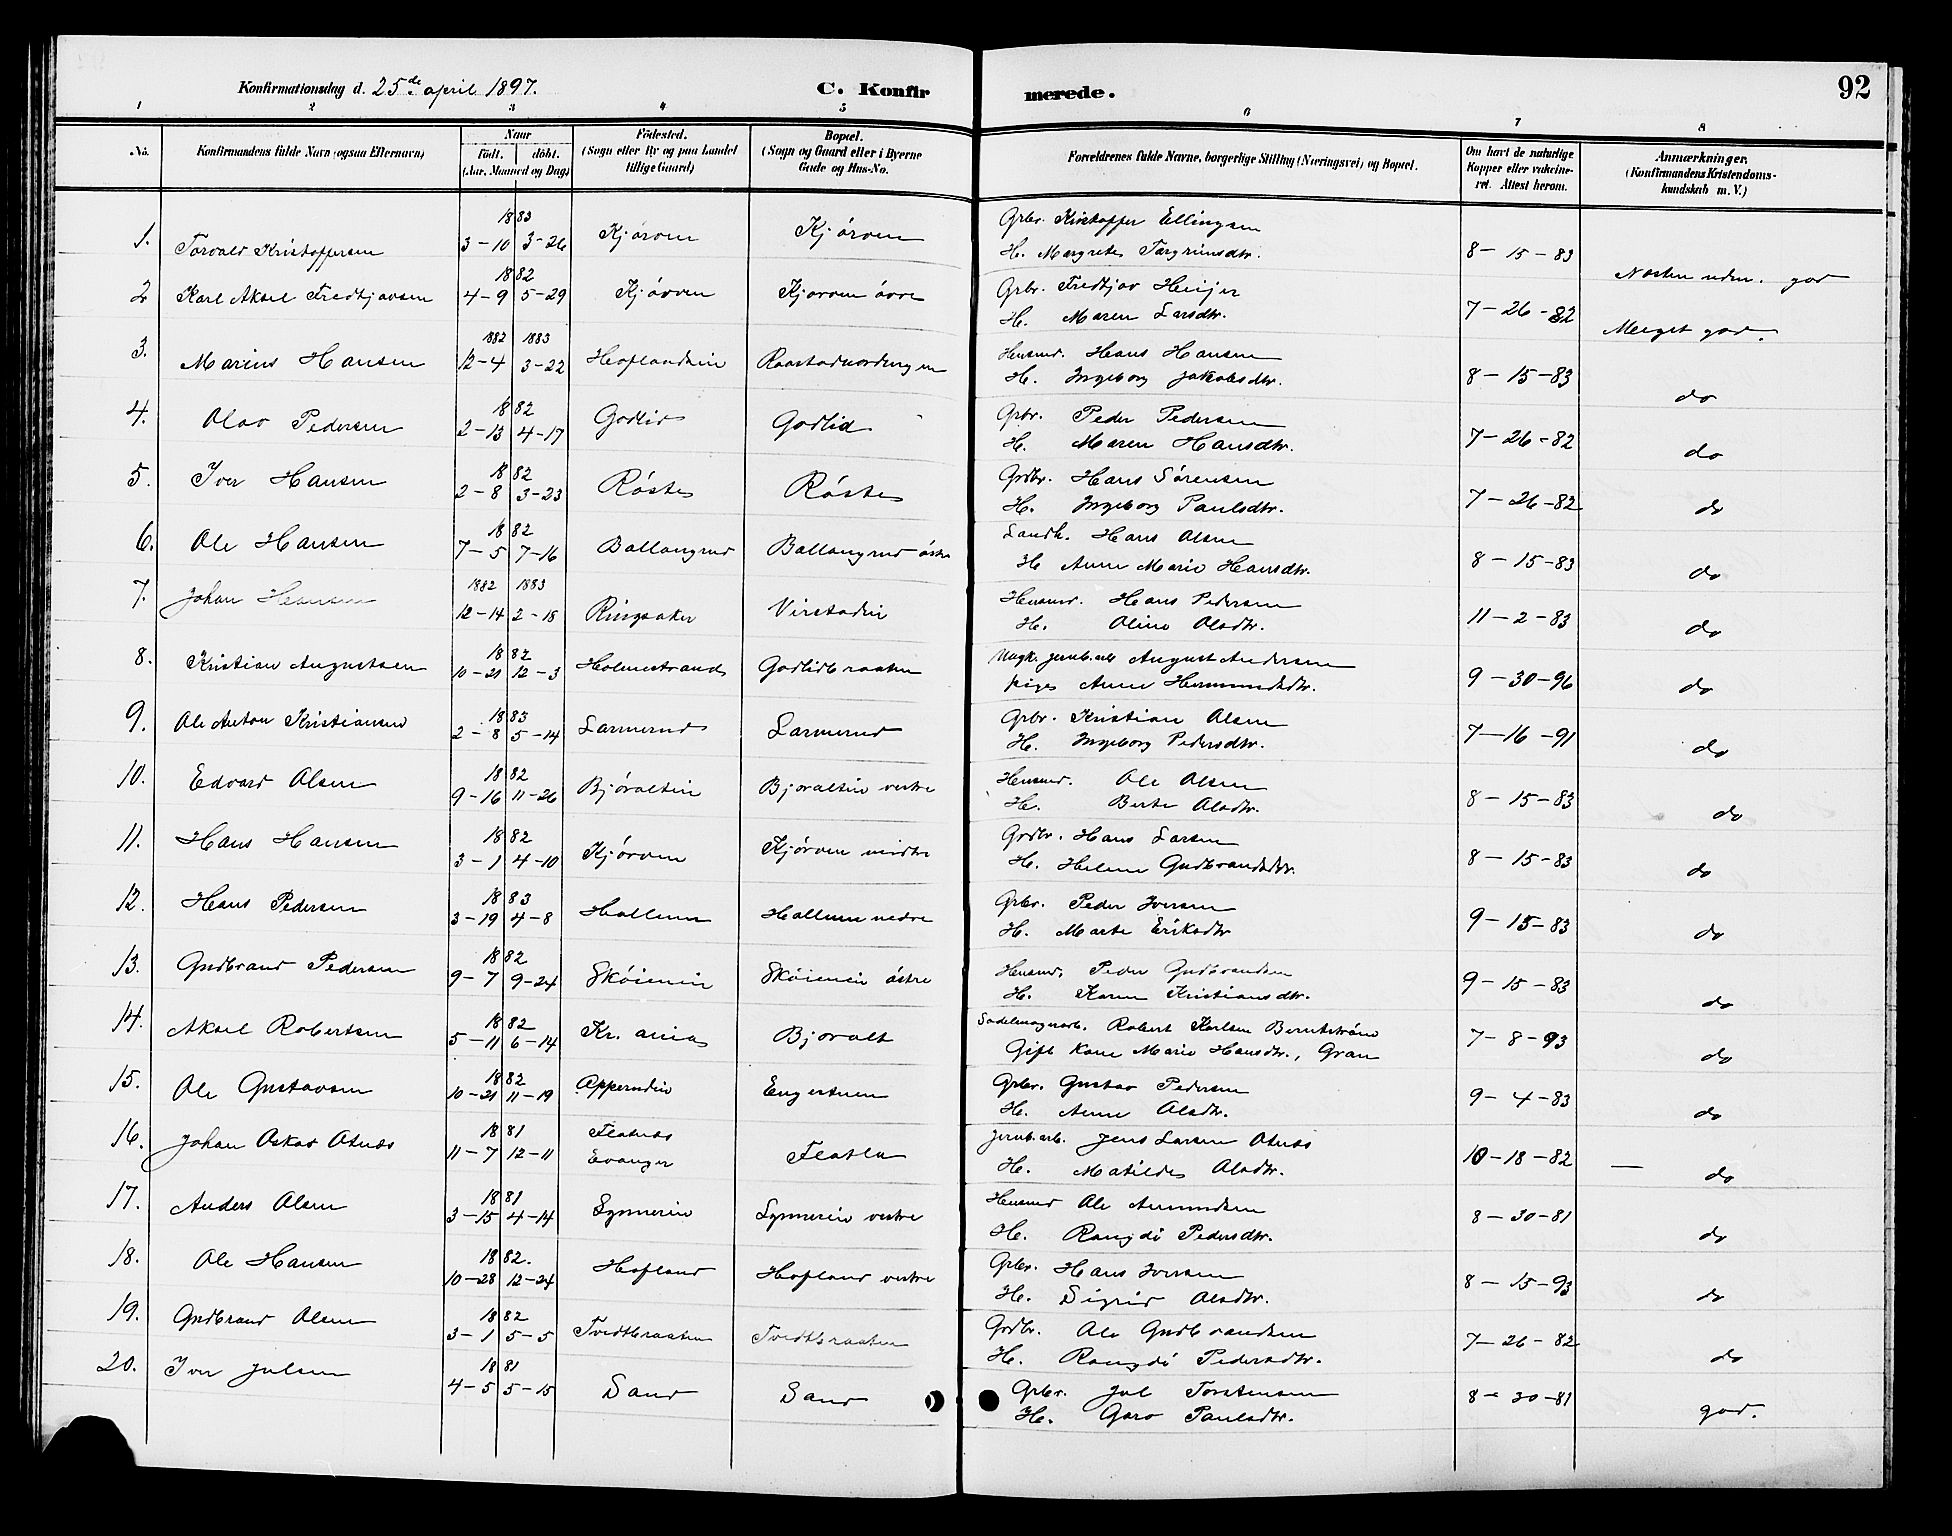 Konfirmationsdag d. 25de april 1897. C. Konfirmerede. 92
1 2 3 4 5 6 7 8
No. Konfirmandens fulde Navn (ogsaa Efternavn) Naar født. døbt. (Aar, Maaned og Dag) Fødested. (Sogn eller By og paa Landet tillige Gaard) Bopæl. (Sogn og Gaard eller i Byerne Gade og Hus-No. Forældrenes fulde Navne, borgerlige Stilling (Næringsvei) og Bopæl. Om havt de naturlige Kopper eller vakcineret. Attest herom. Anmærkninger. (Konfirmandens Kristendomskundskab m. V.)
1. Torvald Kristoffersen 1883 3-10 3-26 Kjørven Kjørven Grbr. Kristoffer Ellingsen
H. Margrete Torgrimsdtr. 8-15-83 Næsten uden. god
2 Karl Aksel Fredtjovsen 1882 4-9 5-29 Kjørven Kjørven øvre Grbr. Fredtjov Heijer
H. Maren Larsdtr. 7-26-82 Meget god.
3. Marius Hansen 1882 12-4 1883 3-22 Hoflandseie Raastadnordengen Husmd. Hans Hansen
H. Ingeborg Jakobsdtr. 8-15-83 do
4. Olav Pedersen 1882 2-13 4-17 Godlid Godlid Grbr. Peder Pedersen
H. Maren Hansdtr. 7-26-82 do
5. Iver Hansen 1882 2-8 3-23 Røste Røste Grdbr. Hans Sørensen
H. Ingeborg Paulsdtr. 7-26-82 do
6. Ole Hansen 1882 7-5 7-16 Ballangrud Ballangrud østre Landh. Hans Olsen
H Anne Marie Hansdtr. 8-15-83 do
7. Johan Hansen 1882 12-14 1883 2-18 Ringsaker Virstadeie Husmd. Hans Pedersen
H. Oline Olsdtr. 11-2-83 do
8. Kristian Augustsen 1882 10-21 12-3 Holmestrand Godlidbraaten Ungk. jernb.arb August Andersen
pige Anne Hermundsdtr. 9-30-96 do
9. Ole Anton Kristiansen 1883 2-8 5-14 Larmerud Larmerud Grbr. Kristian Olsen
H. Ingeborg Pedersdtr. 7-16-91 do
10. Edvard Olsen 1882 9-16 11-26 Bjøralteie Bjøralteie vestre Husmd. Ole Olsen
H. Berte Olsdtr. 8-15-83 do
11. Hans Hansen 1882 3-1 4-10 Kjørven Kjørven midtre Grdbr. Hans Larsen
H. Helene Gudbrandsdtr. 8-15-83 do
12. Hans Pedersen 1883 3-19 4-8 Hallum Hallum nedre Grbr. Peder Iversen
H. Marte Eriksdtr 9-15-83 do
13. Gudbrand Pedersen 1882 9-7 9-24 Skøieneie Skøieneie østre Husmd. Peder Gudbrandsen
H. Karen Kristiansdtr. 9-15-83 do
14. Aksel Robertsen 1882 5-11 6-14 Kr. ania Bjøralt Sadelmagerarb. Robert Karlsen Berntstrøm
Gift kone Marie Hansdtr., Gran 7-8-93 do
15. Ole Gustavsen 1882 10-21 11-19 Apperudeie Engertuen Grbr. Gustav Pedersen
H. Anne Olsdtr. 9-4-83 do
16. Johan Oskar Otnæs 1881 11-7 12-11 Flatnæs Evanger Flatla Jernb.arb. Jens Larsen Otnæs
H. Matilde Olsdtr. 10-18-82 — do
17. Anders Olsen 1881 3-15 4-14 Lynnereie Lynnereie vestre Husmd Ole Amundsen
H. Rangdi Pedersdtr. 8-30-81 do
18. Ole Hansen 1882. 10-28 12-24 Hofland Hofland vestre Grbr. Hans Iversen
H. Sigrid Olsdtr. 8-15-93 do
19. Gudbrand Olsen 1882 3-1 5-5 Tvedtbraaten Tvedtbraaten Grdbr. Ole Gudbrandsen
H. Rangdi Pedersdtr. 7-26-82 do
20. Iver Julsen 1881 4-5 5-15 Sand Sand Grbr. Jul Torstensen
H. Goro Paulsdtr. 8-30-81 god.